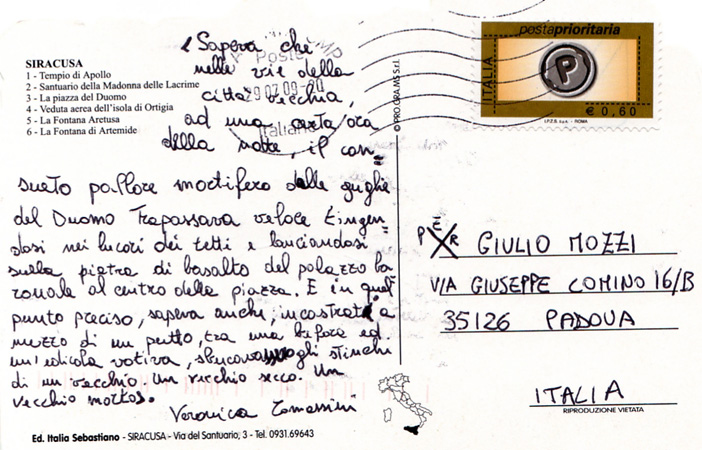 SIRACUSA
1 - Tempio di Apollo
2 - Santuario della Madonna delle Lacrime
3 - La piazza del Duomo
4 - Veduta aerea dell'isola di Ortigia
5 - La Fontana Aretusa
6 - La Fontana di Artemide
Sapeva che
nelle vie della
città vecchia,
ad una certa ora
della notte, il con=
sueto pallore mortifero delle guglie
del Duomo trapassava veloce tingen=
dosi nei lucori dei tetti e lanciandosi
sulla pietra di basalto del palazzo ba
ronale al centro della piazza. E in quel
punto preciso, sapeva anche, incastrati a
mezzo di un putto, tra una bifora ed
un'edicola votiva, sbucavano gli stinchi
di un vecchio. Un vecchio secco. Un
vecchio mottos.
Veronica Tomassini
Ed. Italia Sebastiano - SIRACUSA - Via del Santuario, 3 - Tel. 0931.69643
© PRO.GRA.MS S.r.l.
Poste
29.07.09-20
Italiane
postaprioritaria
ITALIA
P
€ 0,60
I.P.Z.S. S.p.A. - ROMA
PER GIULIO MOZZI
VIA GIUSEPPE COMINO 16/B
35126 PADOVA
ITALIA
RIPRODUZIONE VIETATA